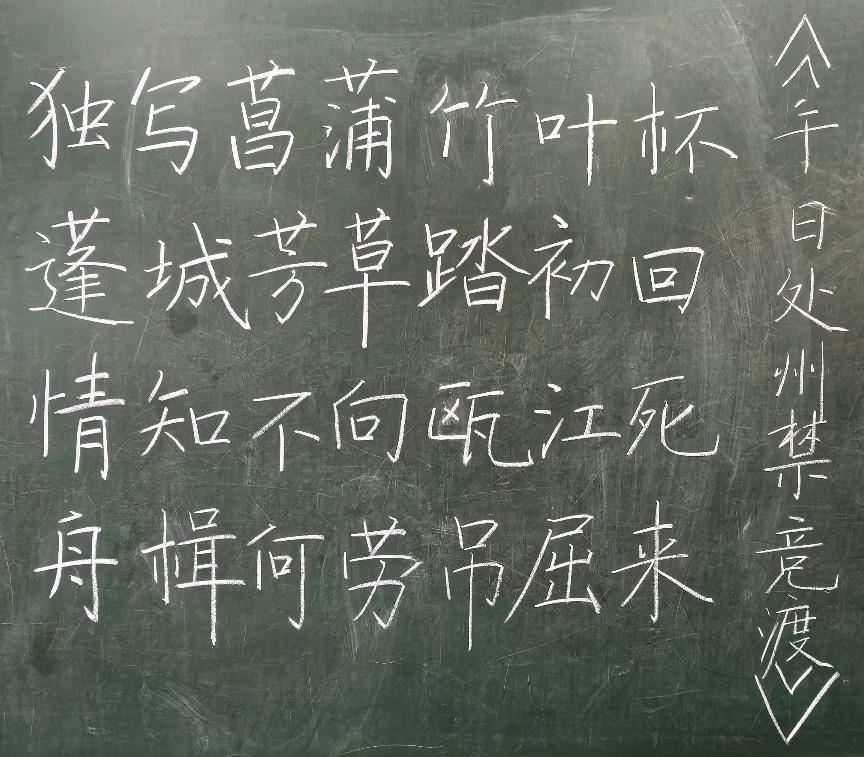 《午日处州禁竞渡》
独写菖蒲竹叶杯
蓬城芳草踏初回
情知不向瓯江死
舟楫何劳吊屈来